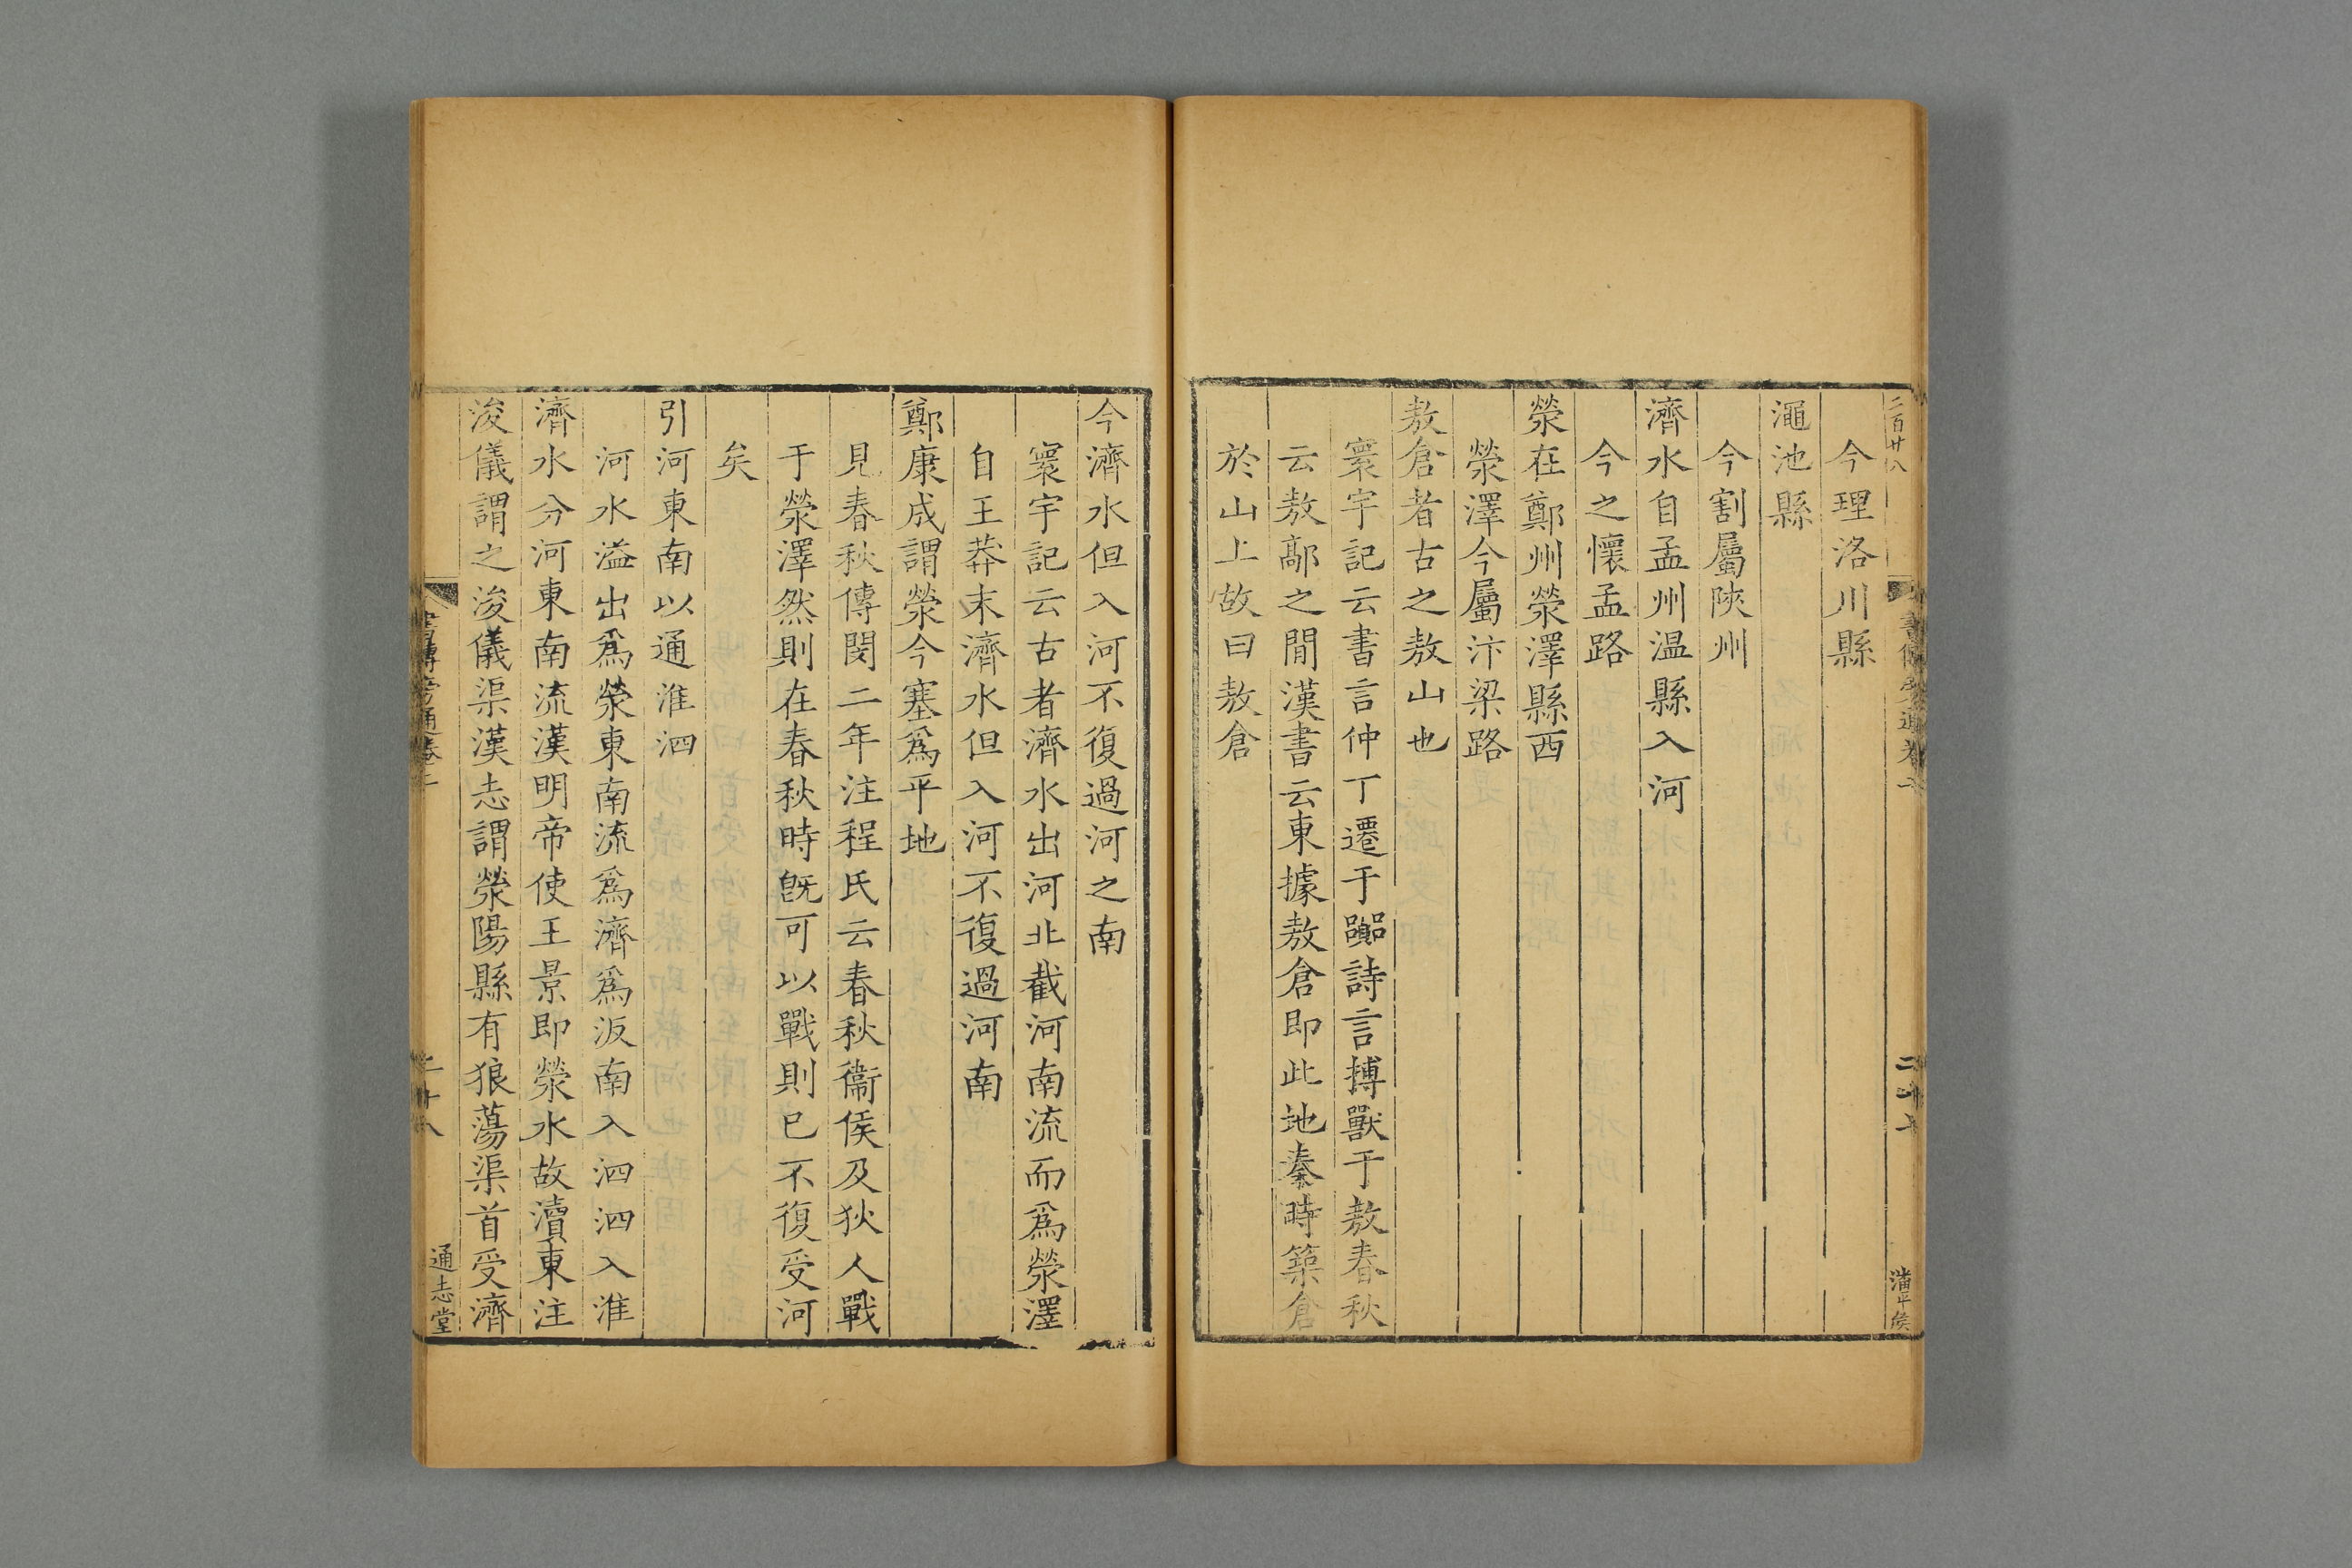 二百廿八
今理洛川縣
澠池縣
今割屬陜州
濟水自孟州温縣入河
今之懷孟路
滎在鄭州滎澤縣西
滎澤今屬汴梁路
敖倉者古之敖山也
寰宇記云書言仲丁遷于嚻詩言搏獸于敖春秋
云敖鄗之閒漢書云東據敖倉即此地秦時築倉
於山上故曰敖倉
今濟水但入河不復過河之南
寰宇記云古者濟水出河北截河南流而爲滎澤
自王莽末濟水但入河不復過河南
鄭康成謂滎今塞爲平地
見春秋傳閔二年注程氏云春秋衞侯及狄人戰
于滎澤然則在春秋時旣可以戰則已不復受河
矣
引河東南以通淮泗
河水溢出爲滎東南流爲濟爲汳南入泗泗入淮
濟水分河東南流漢明帝使王景即滎水故瀆東注
浚儀謂之浚儀渠漢志謂滎陽縣有狼蕩渠首受濟
書傳旁通卷
通志堂